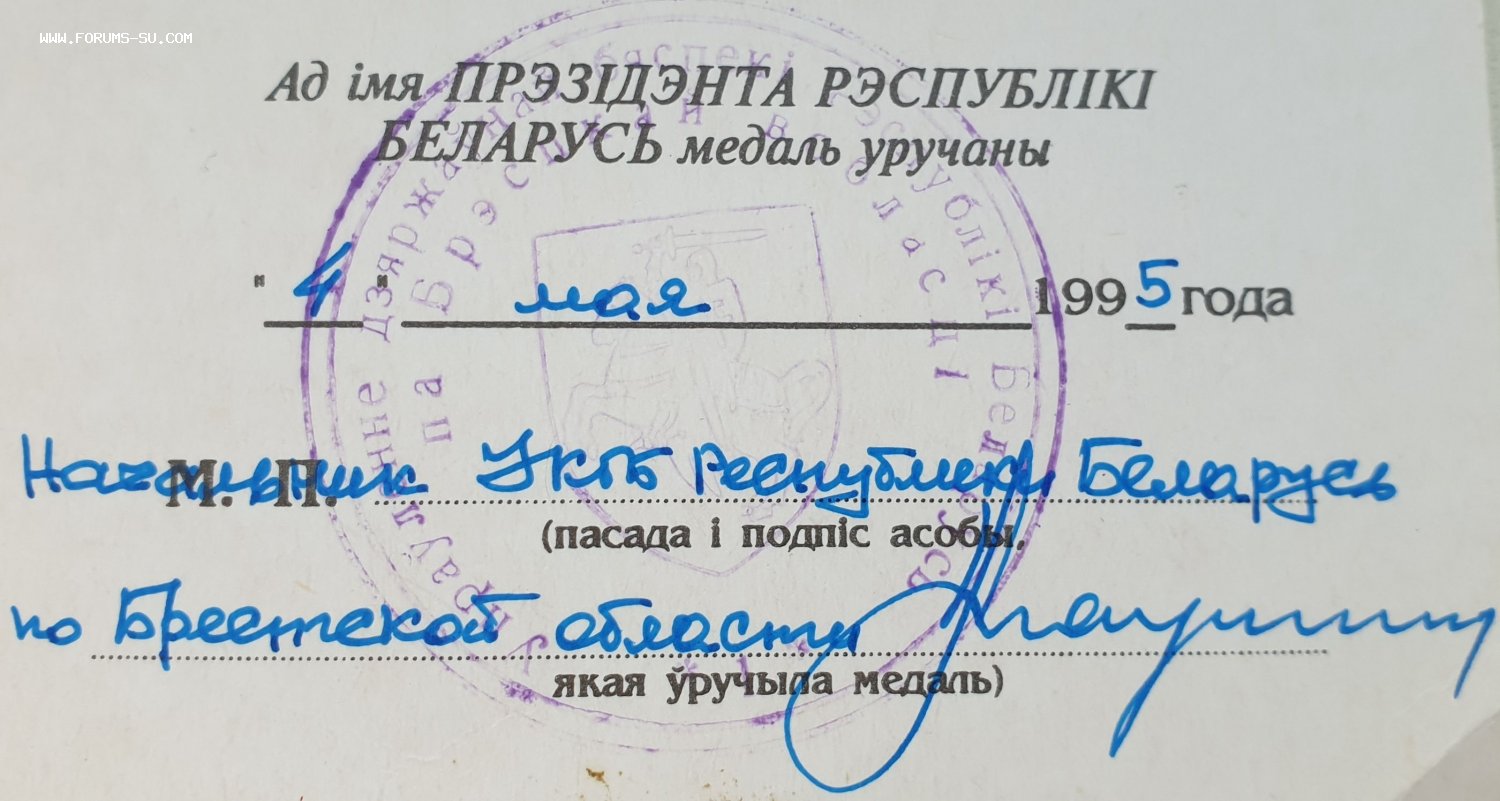 WWW.FORUMS-SU.COM
Ад імя ПРЭЗІДЭНТА РЭСПУБЛІКІ
БЕЛАРУСЬ медаль уручаны
"4" мая 1995 года
М. П. Начальник УКГБ Республики Беларусь
(пасада і подпіс асобы,
по Брестской области
якая ўручыла медаль)
дзяржаўнай бяспекі Рэспублікі Беларусь
па Брэсцкай вобласці